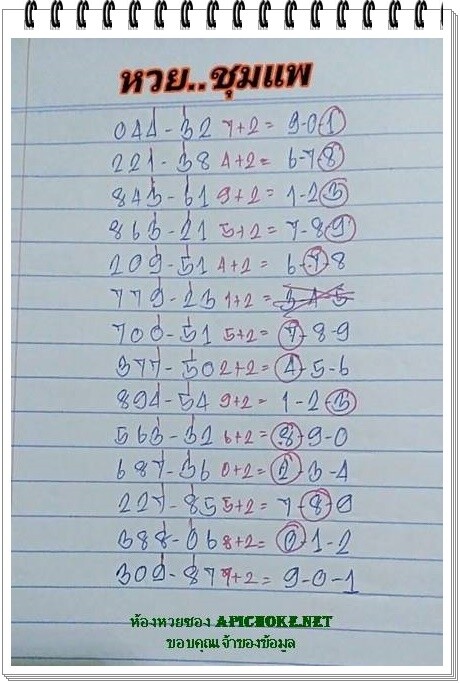 หวย..ชุมแพ
044-32 7+2= 9-0-1
221-38 4+2= 6-7-8
843-61 9+2= 1-2-3
863-21 5+2= 7-8-9
209-51 4+2= 6-7-8
779-23 1+2= 3-4-5
700-51 5+2= 7-8-9
377-50 2+2= 4-5-6
894-54 9+2= 1-2-3
563-32 6+2= 8-9-0
687-36 0+2= 2-3-4
227-85 5+2= 7-8-9
388-06 8+2= 0-1-2
309-87 7+2= 9-0-1
ห้องหวยซอง APICHOKE.NET
ขอบคุณเจ้าของข้อมูล